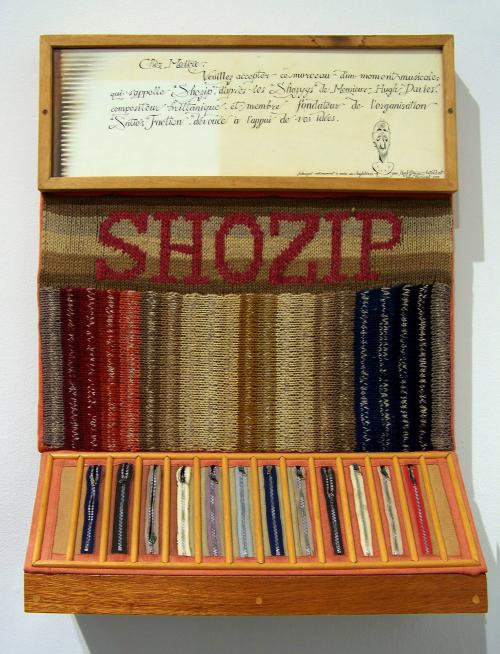 Cher Maître,
Veuillez accepter ce morceau d'un moment musicale,
qui s'appelle "Shozip", d'après les Shozygs de Monsieur Hugh Davies,
compositeur brittanique et membre fondateur de l'organisation
"Satie's Faction" dévouée à l'appui de vos idées.
SHOZIP